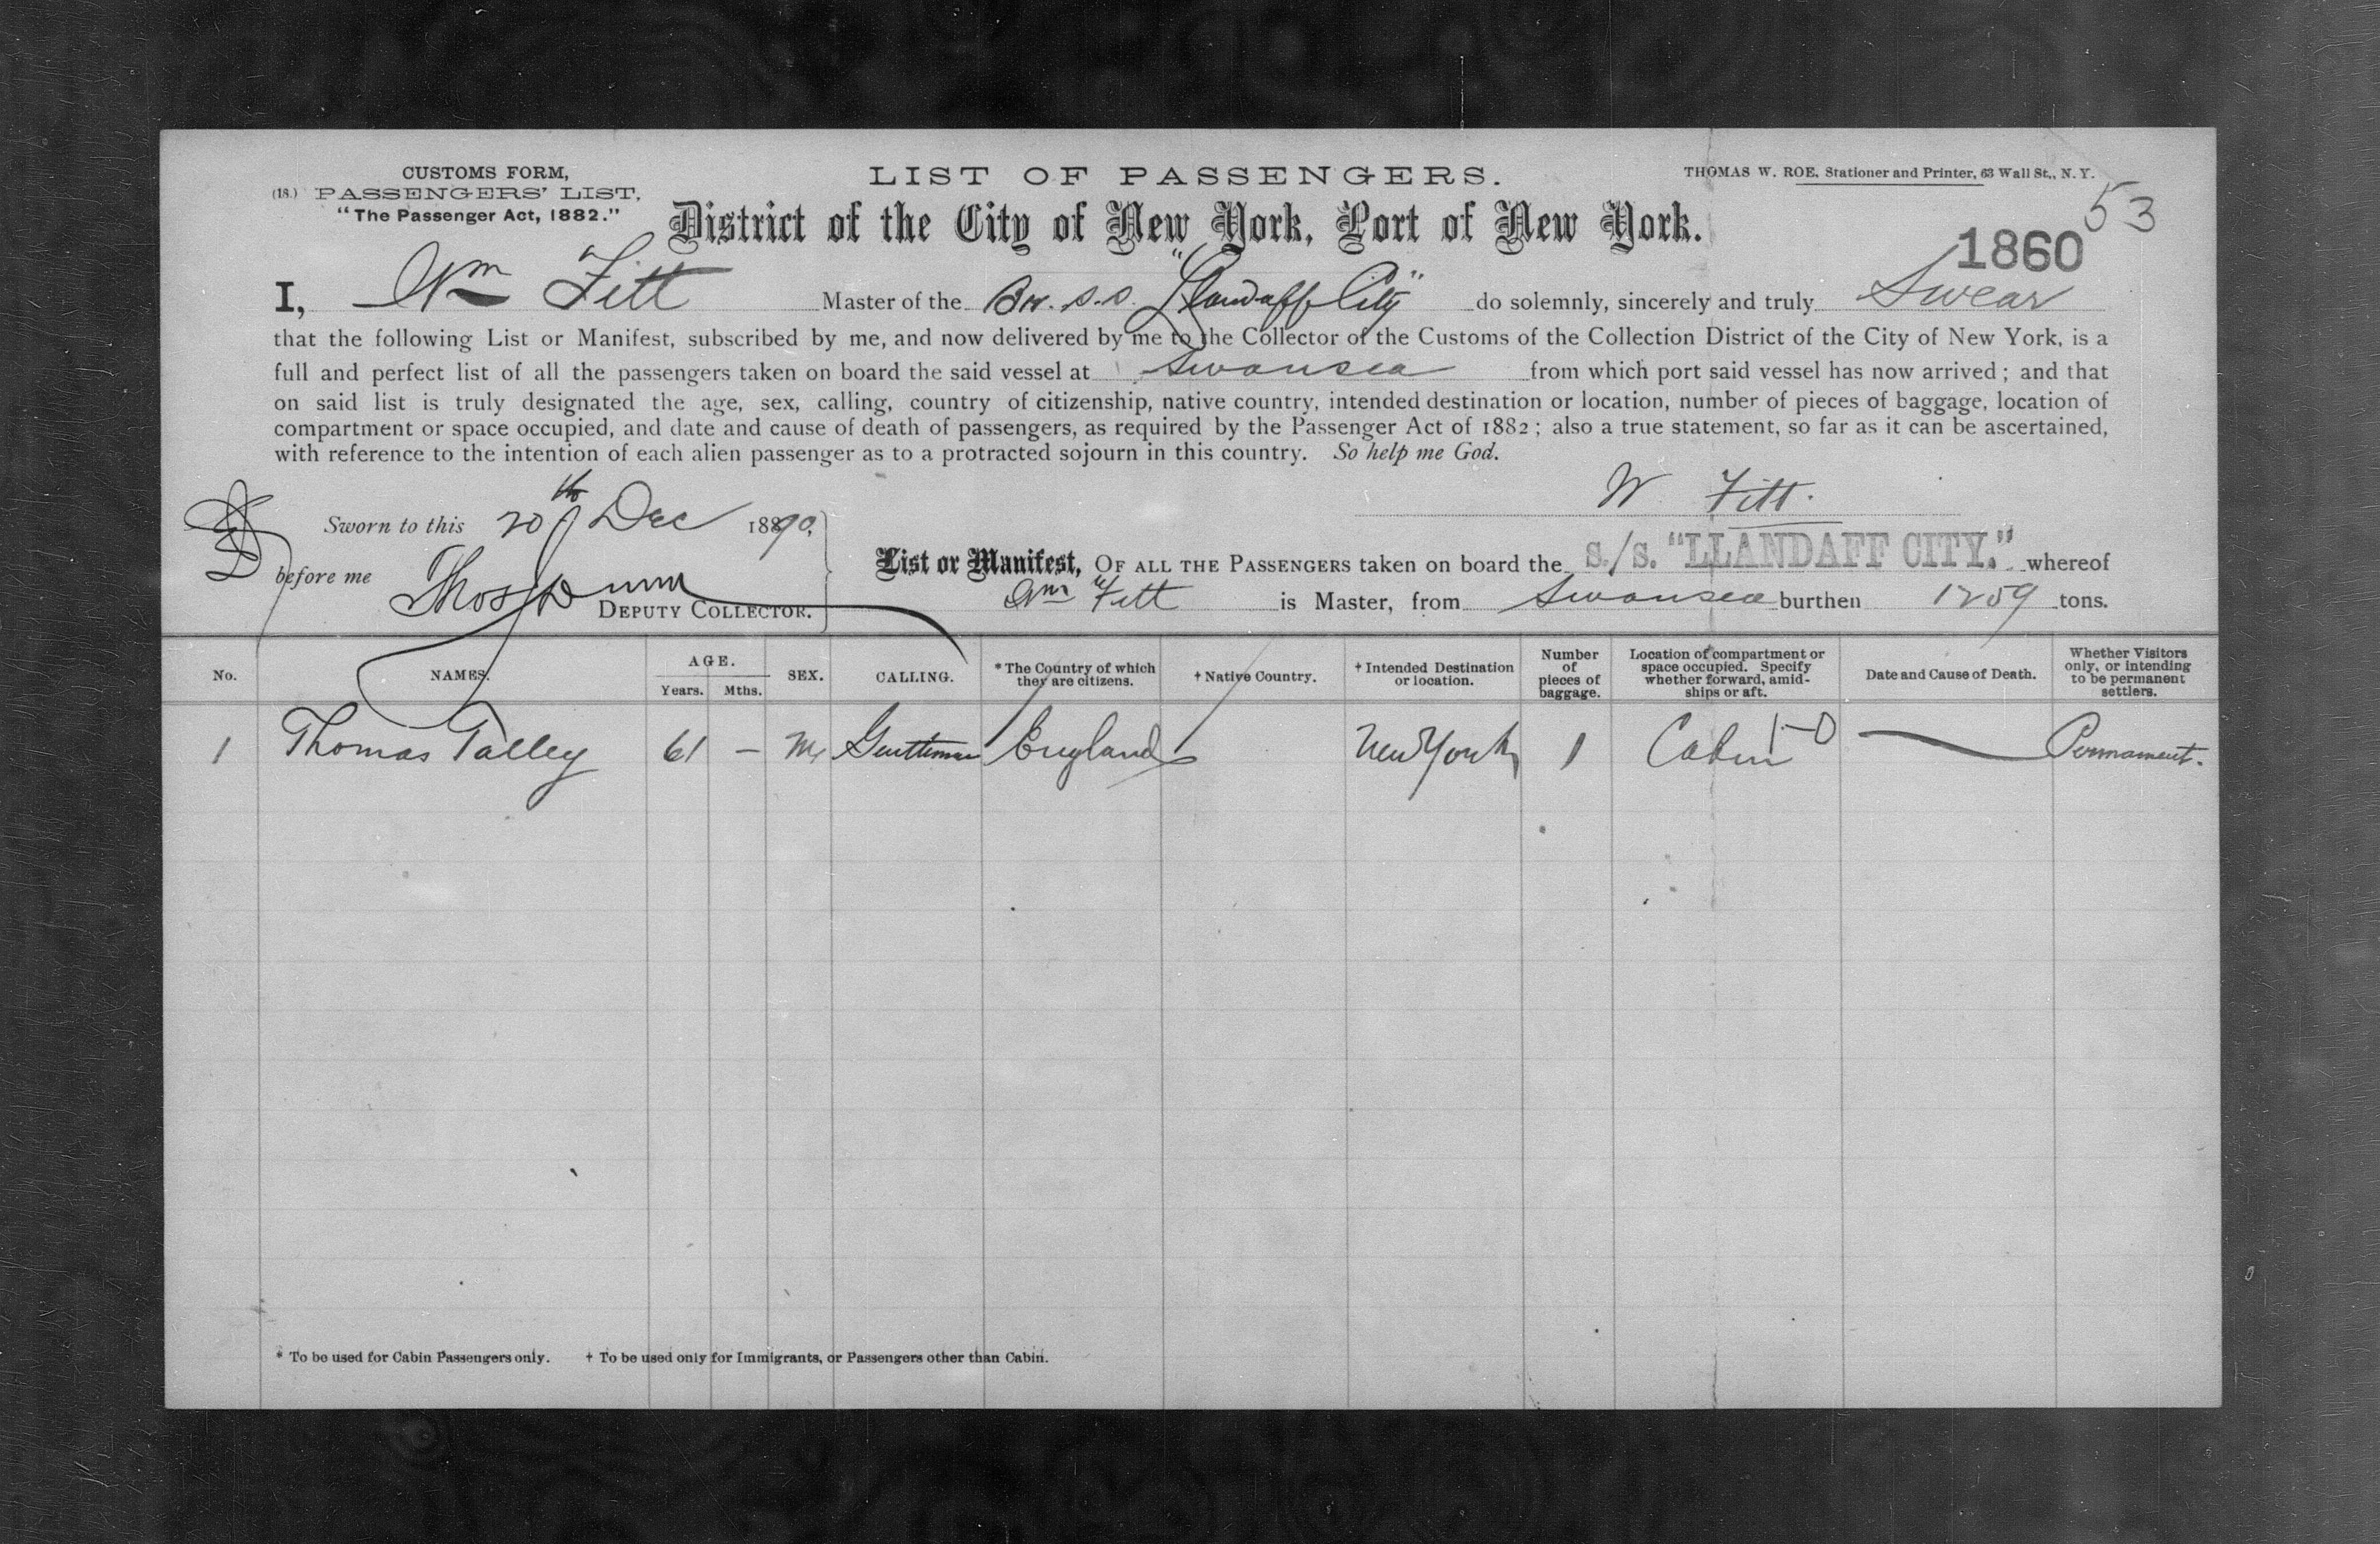 CUSTOMS FORM,
(18.) PASSENGERS' LIST,
"The Passenger Act, 1882."
LIST OF PASSENGERS.
THOMAS W. ROE, Stationer and Printer, 63 Wall St., N. Y.
53
District of the City of New York, Port of New York.
1860
I, Wm Fitt Master of the Br. s.s. "Llandaff City" do solemnly, sincerely and truly Swear
that the following List or Manifest, subscribed by me, and now delivered by me to the Collector of the Customs of the Collection District of the City of New York, is a
full and perfect list of all the passengers taken on board the said vessel at Swansea from which port said vessel has now arrived; and that
on said list is truly designated the age, sex, calling, country of citizenship, native country, intended destination or location, number of pieces of baggage, location of
compartment or space occupied, and date and cause of death of passengers, as required by the Passenger Act of 1882; also a true statement, so far as it can be ascertained,
with reference to the intention of each alien passenger as to a protracted sojourn in this country. So help me God.
W Fitt.
Sworn to this 20th Dec 1890.
before me Thos
DEPUTY COLLECTOR.
List or Manifest, OF ALL THE PASSENGERS taken on board the S./S. "LLANDAFF CITY." whereof
Wm Fitt is Master, from Swansea burthen 1259 tons.
No. NAMES. AGE. Years. Mths. SEX. CALLING. * The Country of which they are citizens. † Native Country. † Intended Destination or location. Number of pieces of baggage. Location of compartment or space occupied. Specify whether forward, amidships or aft. Date and Cause of Death. Whether Visitors only, or intending to be permanent settlers.
1 Thomas Talley 61 — M Gentleman England New York 1 Cabin 1-0 — Permament.
* To be used for Cabin Passengers only. † To be used only for Immigrants, or Passengers other than Cabin.